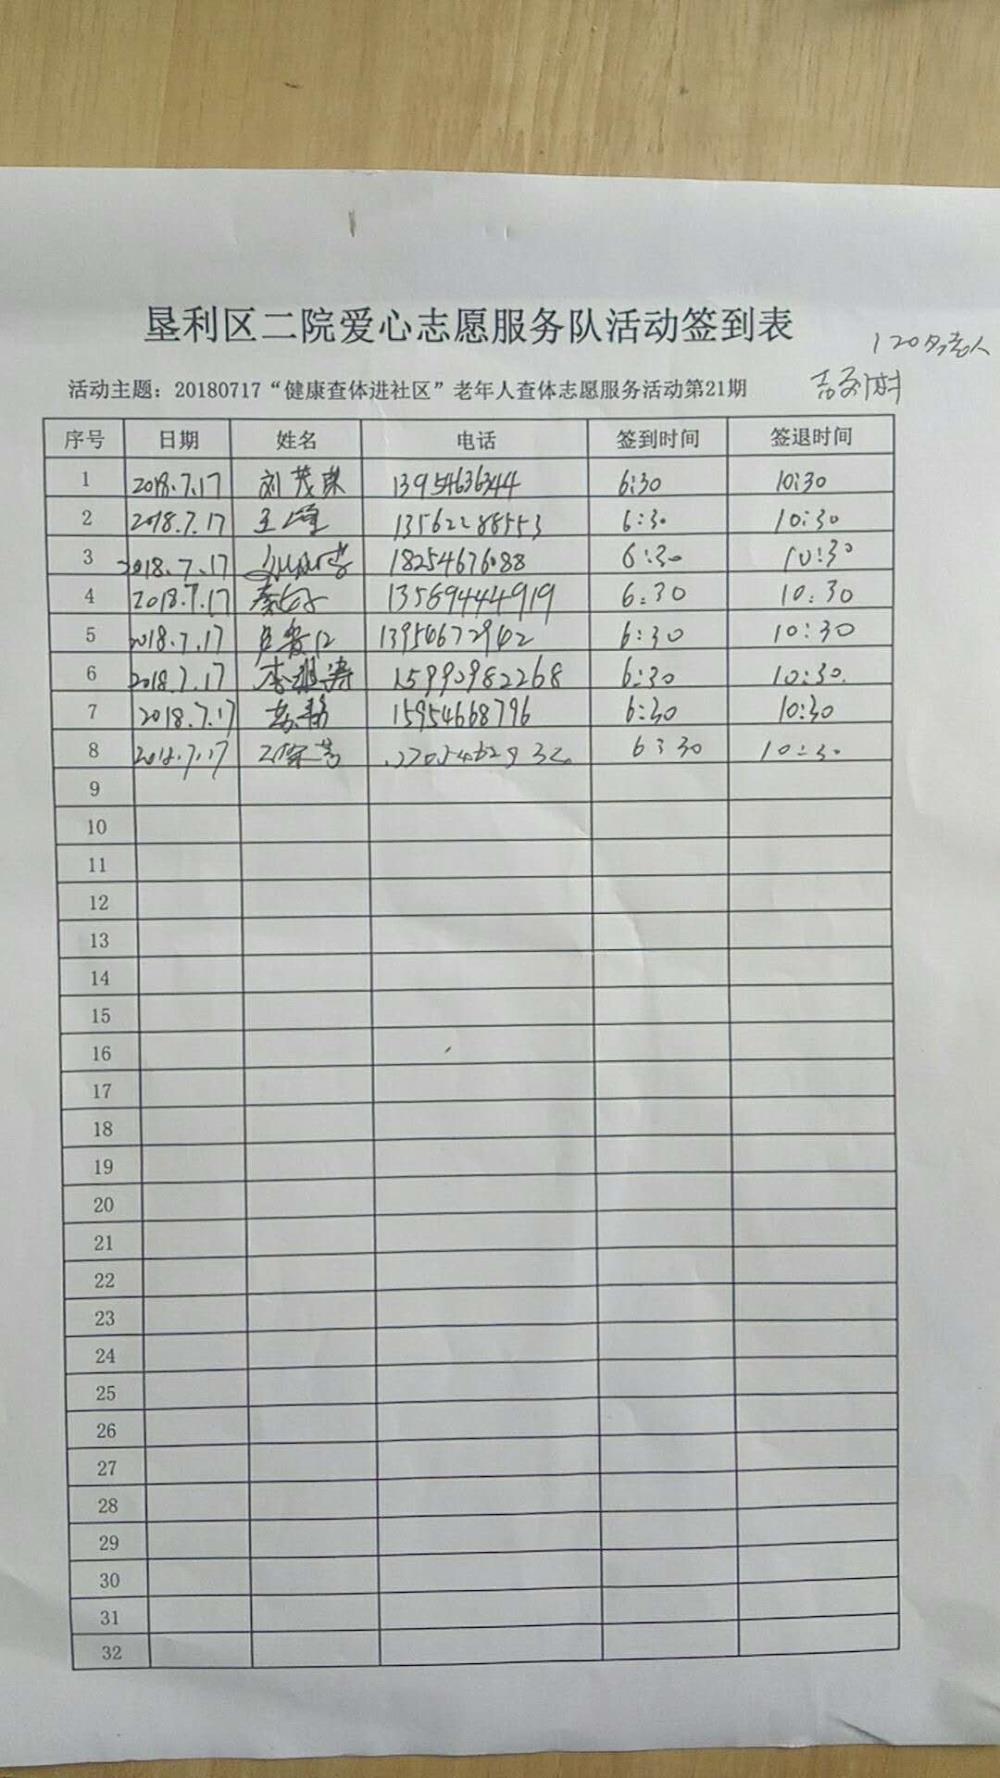 垦利区二院爱心志愿服务队活动签到表
120名老人
活动主题：20180717“健康查体进社区”老年人查体志愿服务活动第21期
序号 日期 姓名 电话 签到时间 签退时间
1 2018.7.17 刘茂东 13954636344 6:30 10:30
2 2018.7.17 13562288553 6:30 10:30
3 2018.7.17 18254676088 6:30 10:30
4 2018.7.17 13569444919 6:30 10:30
5 2018.7.17 13954672942 6:30 10:30
6 2018.7.17 李祖涛 6:30 10:30.
7 2018.7.17 15954668796 6:30 10:30
8 2018.7.17 6:30 10:30
9
10
11
12
13
14
15
16
17
18
19
20
21
22
23
24
25
26
27
28
29
30
31
32